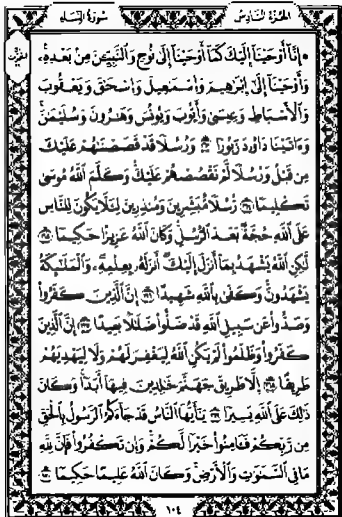 الجزء السادس
سورة النساء
۞ إِنَّا أَوْحَيْنَا إِلَيْكَ كَمَا أَوْحَيْنَا إِلَىٰ نُوحٍ وَالنَّبِيِّينَ مِنْ بَعْدِهِ،
وَأَوْحَيْنَا إِلَىٰ إِبْرَٰهِيمَ وَإِسْمَٰعِيلَ وَإِسْحَٰقَ وَيَعْقُوبَ
وَالْأَسْبَاطِ وَعِيسَىٰ وَأَيُّوبَ وَيُونُسَ وَهَٰرُونَ وَسُلَيْمَٰنَ
وَءَاتَيْنَا دَاوُۥدَ زَبُورًا ١٦٣ وَرُسُلًا قَدْ قَصَصْنَٰهُمْ عَلَيْكَ
مِن قَبْلُ وَرُسُلًا لَّمْ نَقْصُصْهُمْ عَلَيْكَ وَكَلَّمَ اللَّهُ مُوسَىٰ
تَكْلِيمًا ١٦٤ رُّسُلًا مُّبَشِّرِينَ وَمُنذِرِينَ لِئَلَّا يَكُونَ لِلنَّاسِ
عَلَى اللَّهِ حُجَّةٌ بَعْدَ الرُّسُلِ وَكَانَ اللَّهُ عَزِيزًا حَكِيمًا ١٦٥
لَّٰكِنِ اللَّهُ يَشْهَدُ بِمَا أَنزَلَ إِلَيْكَ أَنزَلَهُۥ بِعِلْمِهِۦ وَالْمَلَٰٓئِكَةُ
يَشْهَدُونَ وَكَفَىٰ بِاللَّهِ شَهِيدًا ١٦٦ إِنَّ الَّذِينَ كَفَرُوا
وَصَدُّوا عَن سَبِيلِ اللَّهِ قَدْ ضَلُّوا ضَلَٰلًا بَعِيدًا ١٦٧ إِنَّ الَّذِينَ
كَفَرُوا وَظَلَمُوا لَمْ يَكُنِ اللَّهُ لِيَغْفِرَ لَهُمْ وَلَا لِيَهْدِيَهُمْ
طَرِيقًا ١٦٨ إِلَّا طَرِيقَ جَهَنَّمَ خَٰلِدِينَ فِيهَا أَبَدًا وَكَانَ
ذَٰلِكَ عَلَى اللَّهِ يَسِيرًا ١٦٩ يَٰٓأَيُّهَا النَّاسُ قَدْ جَآءَكُمُ الرَّسُولُ بِالْحَقِّ
مِن رَّبِّكُمْ فَـَٔامِنُوا خَيْرًا لَّكُمْ وَإِن تَكْفُرُوا فَإِنَّ لِلَّهِ
مَا فِي السَّمَٰوَٰتِ وَالْأَرْضِ وَكَانَ اللَّهُ عَلِيمًا حَكِيمًا ١٧٠
١٠٤